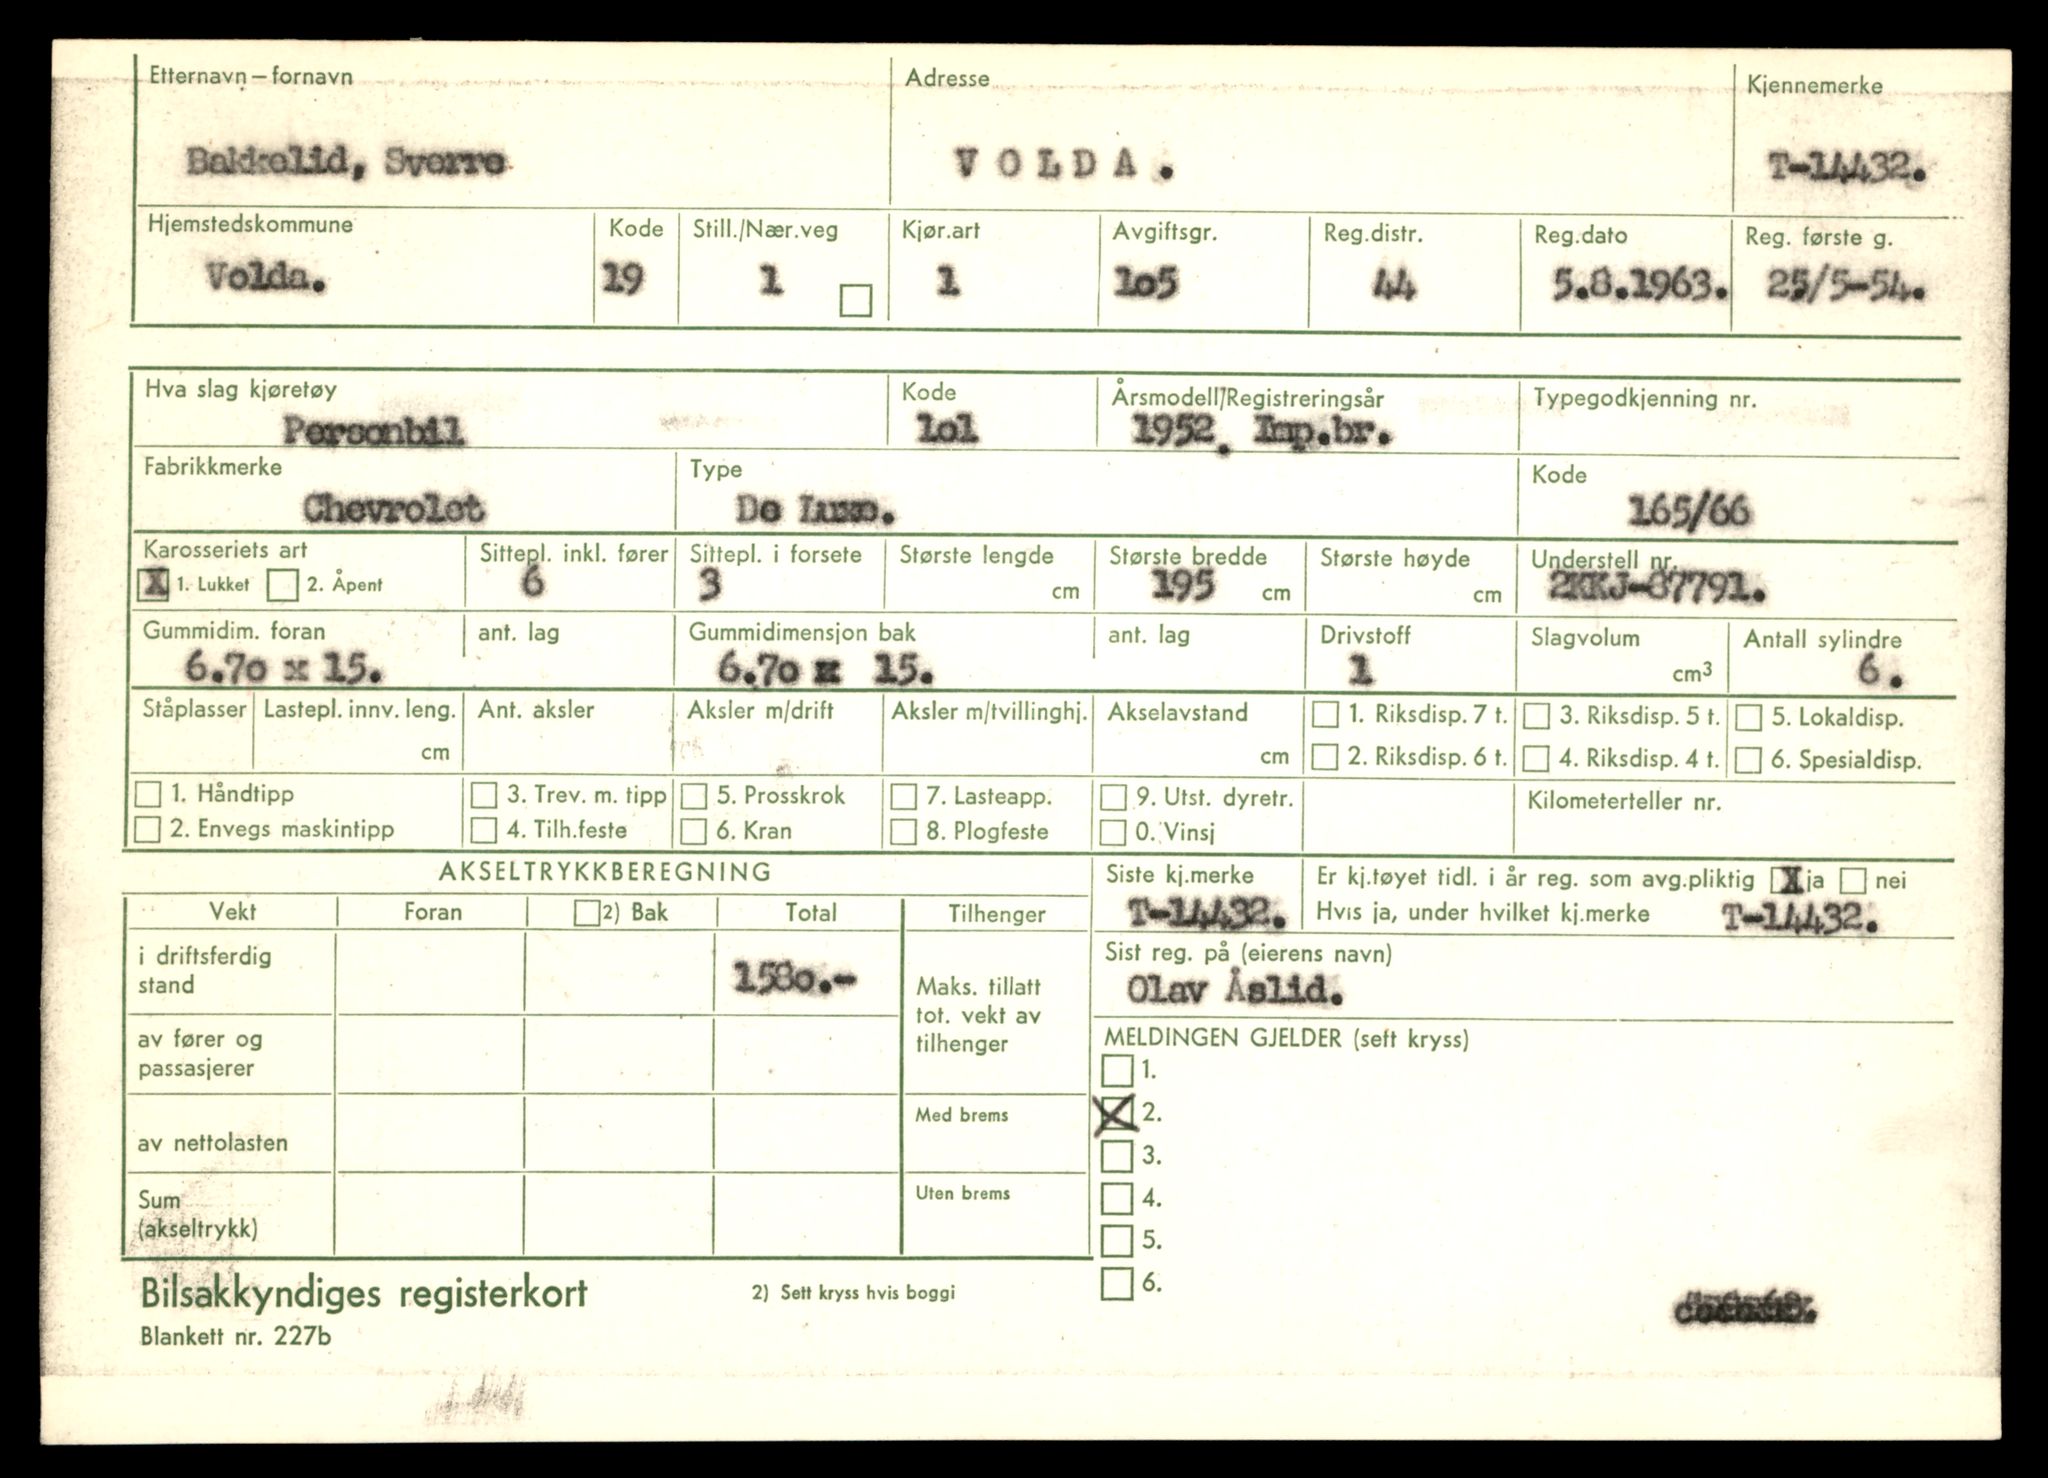 Etternavn – fornavn Adresse Kjennemerke
Bakkelid, Sverre V O L D A . T-14432.
Hjemstedskommune Kode Still./Nær.veg Kjør.art Avgiftsgr. Reg.distr. Reg.dato Reg. første g.
Volda. 19 1 1 1o5 44 5.8.1963. 25/5-54.
Hva slag kjøretøy Kode Årsmodell/Registreringsår Typegodkjenning nr.
Personbil 1o1 1952. Imp.br.
Fabrikkmerke Type Kode
Chevrolet De Luxe. 165/66
Karosseriets art Sittepl. inkl. fører Sittepl. i forsete Største lengde Største bredde Største høyde Understell nr.
X 1. Lukket 2. Åpent 6 3 cm 195 cm cm 2KKJ-87791.
Gummidim. foran ant. lag Gummidimensjon bak ant. lag Drivstoff Slagvolum Antall sylindre
6.7o x 15. 6.7o x 15. 1 cm³ 6.
Ståplasser Lastepl. innv. leng. Ant. aksler Aksler m/drift Aksler m/tvillinghj. Akselavstand 1. Riksdisp. 7 t. 3. Riksdisp. 5 t. 5. Lokaldisp.
cm cm 2. Riksdisp. 6 t. 4. Riksdisp. 4 t. 6. Spesialdisp.
1. Håndtipp 3. Trev. m. tipp 5. Prosskrok 7. Lasteapp. 9. Utst. dyretr. Kilometerteller nr.
2. Envegs maskintipp 4. Tilh.feste 6. Kran 8. Plogfeste 0. Vinsj
AKSELTRYKKBEREGNING Siste kj.merke Er kj.tøyet tidl. i år reg. som avg.pliktig X ja nei
Vekt Foran 2) Bak Total Tilhenger T-14432. Hvis ja, under hvilket kj.merke T-14432.
i driftsferdig stand 158o.- Maks. tillatt tot. vekt av tilhenger
Sist reg. på (eierens navn)
Olav Åslid.
av fører og passasjerer
MELDINGEN GJELDER (sett kryss)
1.
av nettolasten Med brems X 2.
3.
Sum (akseltrykk) Uten brems 4.
5.
6.
Bilsakkyndiges registerkort 2) Sett kryss hvis boggi
Blankett nr. 227b